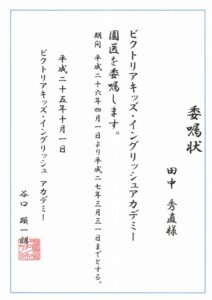 委嘱状
田中 秀直様
ビクトリアキッズ・イングリッシュアカデミー
園医を委嘱します。
期間 平成二十六年四月一日より平成二七年三月三一日までとする。
平成二十五年十月一日
ビクトリアキッズ・イングリッシュ アカデミー
谷口 頭一朗